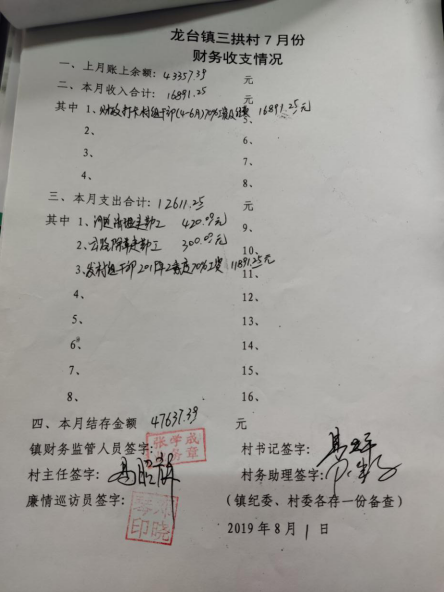 龙台镇三拱村7月份
财务收支情况
一、上月账上余额：43357.39 元
二、本月收入合计：16891.25 元
其中 1、财政打卡村组干部(4-6月)70%工资及 16891.25元
2、 5、
3、 6、
4、 7、
8、
三、本月支出合计：12611.25 元
其中 1、河道清理走勤工 420.00元 9、
2、公路除草走勤工 300.00元 10、
3、发村组干部2019年2季度70%工资 11891.25元
4、 12、
5、 13、
6、 14、
7、 15、
8、 16、
四、本月结存金额 47637.39 元
镇财务监管人员签字： 张学成 章 村书记签字：
村主任签字： 村务助理签字：
廉情巡访员签字： 印 晓 （镇纪委、村委各存一份备查）
2019年8月1日